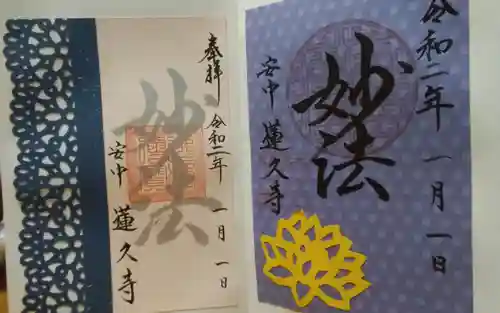 奉拝
令和二年 一月 一日
妙法
安中 蓮久寺
令和二年 一月 一日
妙法
安中 蓮久寺